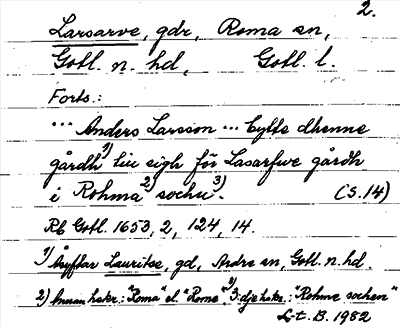 2.
Larsarve, gdr, Roma sn,
Gotl. n. hd, Gotl. l.
Forts.:
... Anders Larsson ... bytte dhenne
gårdh 1) till sigh för Lasarfwe gårdh
i Rohma 2) sochn 3). (S. 14)
Rb Gotl. 1653, 2, 124, 14.
1) Åsyftar Lauritse, gd, Ardre sn, Gotl. n. hd.
2) Annan hskr.: "Roma" el. "Rome". 3) 3:dje hskr.: "Rohme sochen"
L-t. B. 1982